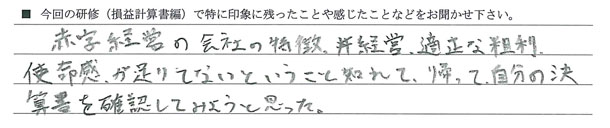 ■ 今回の研修（損益計算書編）で特に印象に残ったことや感じたことなどをお聞かせ下さい。
赤字経営の会社の特徴、丼経営、適正な粗利
使命感、が足りてないということ知れて、帰って、自分の決
算書を確認してみようと思った。